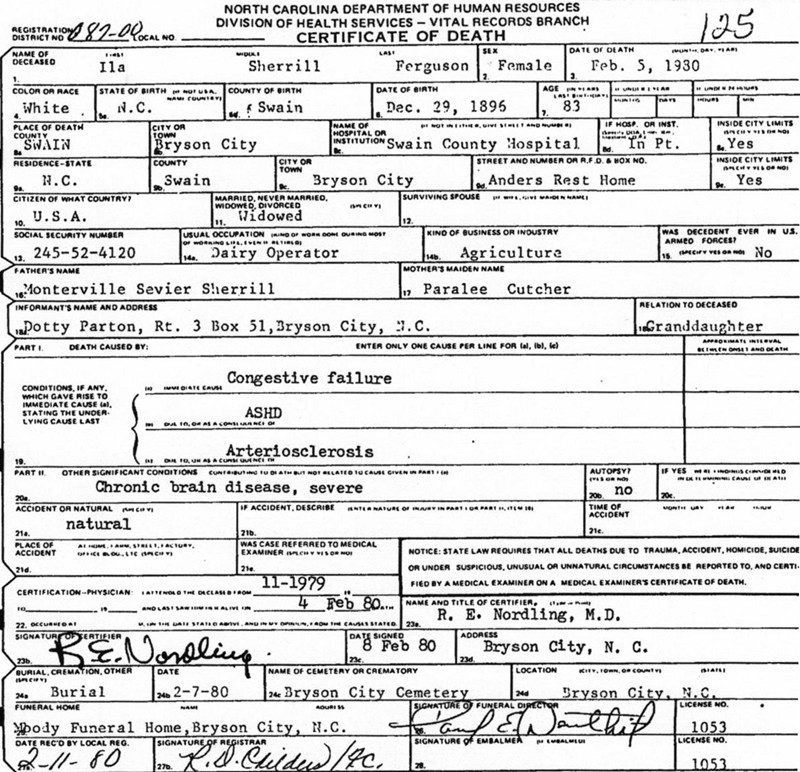 NORTH CAROLINA DEPARTMENT OF HUMAN RESOURCES
DIVISION OF HEALTH SERVICES – VITAL RECORDS BRANCH
CERTIFICATE OF DEATH
125
REGISTRATION DISTRICT NO. 087-00 LOCAL NO.
NAME OF DECEASED FIRST MIDDLE LAST SEX DATE OF DEATH (MONTH, DAY, YEAR)
1. Ila Sherrill Ferguson 2. Female 3. Feb. 5, 1980
COLOR OR RACE STATE OF BIRTH (IF NOT USA, NAME COUNTRY) COUNTY OF BIRTH DATE OF BIRTH AGE (IN YEARS LAST BIRTHDAY) IF UNDER 1 YEAR IF UNDER 24 HOURS
MONTHS DAYS HOURS MIN
4. White 5a. N.C. Swain 6. Dec. 29, 1896 7. 83
PLACE OF DEATH COUNTY CITY OR TOWN NAME OF HOSPITAL OR INSTITUTION (IF NOT IN EITHER, GIVE STREET AND NUMBER) IF HOSP. OR INST. INSIDE CITY LIMITS (SPECIFY YES OR NO)
8a. SWAIN 8b. Bryson City 8c. Swain County Hospital 8d. In Pt. 8e. Yes
RESIDENCE-STATE COUNTY CITY OR TOWN STREET AND NUMBER OR R.F.D. & BOX NO. INSIDE CITY LIMITS (SPECIFY YES OR NO)
9a. N.C. 9b. Swain 9c. Bryson City 9d. Anders Rest Home 9e. Yes
CITIZEN OF WHAT COUNTRY? MARRIED, NEVER MARRIED, WIDOWED, DIVORCED (SPECIFY) SURVIVING SPOUSE (IF WIFE, GIVE MAIDEN NAME)
10. U.S.A. 11. Widowed 12.
SOCIAL SECURITY NUMBER USUAL OCCUPATION (KIND OF WORK DONE DURING MOST OF WORKING LIFE, EVEN IF RETIRED) KIND OF BUSINESS OR INDUSTRY WAS DECEDENT EVER IN U.S. ARMED FORCES?
13. 245-52-4120 14a. Dairy Operator 14b. Agriculture 15. (SPECIFY YES OR NO) No
FATHER'S NAME MOTHER'S MAIDEN NAME
16. Monterville Sevier Sherrill 17 Paralee Cutcher
INFORMANT'S NAME AND ADDRESS RELATION TO DECEASED
Dotty Parton, Rt. 3 Box 51, Bryson City, N.C. Granddaughter
PART I. DEATH CAUSED BY: ENTER ONLY ONE CAUSE PER LINE FOR (a), (b), (c) APPROXIMATE INTERVAL BETWEEN ONSET AND DEATH
CONDITIONS, IF ANY, WHICH GAVE RISE TO IMMEDIATE CAUSE (a), STATING THE UNDERLYING CAUSE LAST
Congestive failure
(a) IMMEDIATE CAUSE
ASHD
(b) DUE TO, OR AS A CONSEQUENCE OF
Arteriosclerosis
19. (c) DUE TO, OR AS A CONSEQUENCE OF
PART II. OTHER SIGNIFICANT CONDITIONS CONTRIBUTING TO DEATH BUT NOT RELATED TO CAUSE GIVEN IN PART I (a) AUTOPSY? (YES OR NO) IF YES WERE FINDINGS CONSIDERED IN DETERMINING CAUSE OF DEATH
20a. Chronic brain disease, severe 20b. no 20c.
ACCIDENT OR NATURAL (SPECIFY) IF ACCIDENT, DESCRIBE (ENTER NATURE OF INJURY IN PART I OR PART II, ITEM 19) TIME OF ACCIDENT MONTH DAY YEAR HOUR
21a. natural 21b. 21c.
PLACE OF ACCIDENT AT HOME, FARM, STREET, FACTORY, OFFICE BLDG., ETC (SPECIFY) WAS CASE REFERRED TO MEDICAL EXAMINER (SPECIFY YES OR NO)
21d. 21e.
NOTICE: STATE LAW REQUIRES THAT ALL DEATHS DUE TO TRAUMA, ACCIDENT, HOMICIDE, SUICIDE
OR UNDER SUSPICIOUS, UNUSUAL OR UNNATURAL CIRCUMSTANCES BE REPORTED TO, AND CERTI-
FIED BY A MEDICAL EXAMINER ON A MEDICAL EXAMINER'S CERTIFICATE OF DEATH.
CERTIFICATION–PHYSICIAN: I ATTENDED THE DECEASED FROM 11-1979 19
TO 19 AND LAST SAW HIM/HER ALIVE ON 4 Feb 80
22. OCCURRED AT M, ON THE DATE STATED ABOVE, AND IN MY OPINION, FROM THE CAUSES STATED.
NAME AND TITLE OF CERTIFIER
23a. R. E. Nordling, M.D.
SIGNATURE OF CERTIFIER DATE SIGNED ADDRESS
23b. R.E. Nordling. 23c. 8 Feb 80 23d. Bryson City, N. C.
BURIAL, CREMATION, OTHER (SPECIFY) DATE NAME OF CEMETERY OR CREMATORY LOCATION (CITY, TOWN, OR COUNTY) (STATE)
24a Burial 24b 2-7-80 24c Bryson City Cemetery 24d Bryson City, N.C.
FUNERAL HOME NAME ADDRESS SIGNATURE OF FUNERAL DIRECTOR LICENSE NO.
Moody Funeral Home, Bryson City, N.C. 1053
DATE REC'D BY LOCAL REG. SIGNATURE OF REGISTRAR SIGNATURE OF EMBALMER (IF EMBALMED) LICENSE NO.
2-11-80 27b. 28. 1053